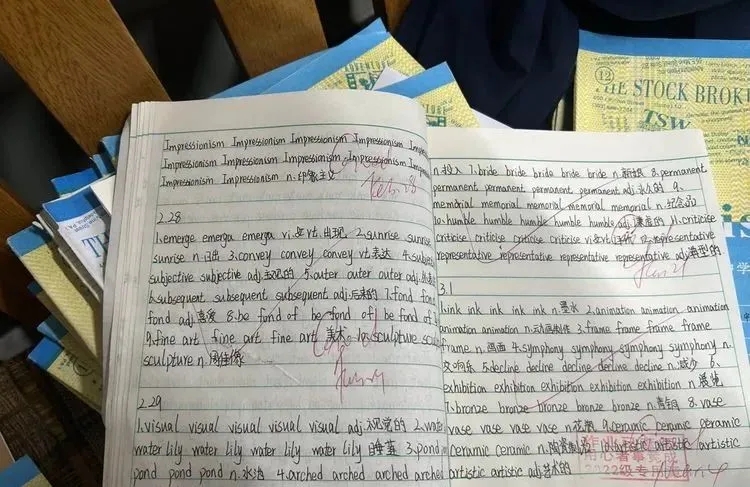 Impressionism Impressionism Impressionism Impressionism Impression
Impressionism Impressionism Impressionism Impressionism
Impressionism Impressionism n.印象主义
Feb. 28
2.28
1.emerge emerge emerge vi.&vt.出现 2.sunrise sunrise
sunrise n.日出 3.convey convey convey vt.表达 4.subjec
subjective subjective adj.主观的 5.outer outer outer adj.
6.subsequent subsequent subsequent adj.后来的 7.fond fond
fond adj.喜爱 8.be fond of be fond of be fond of
9.fine art fine art fine art 美术 10.sculpture
sculpture n.
2.29
1.visual visual visual visual visual adj.视觉的 2.water
water lily water lily water lily water lily 睡莲 3.pond
pond pond pond n.水池 4.arched arched arched arched
n.投入 7.bride bride bride bride bride n.新娘 8.permanent
permanent permanent permanent permanent adj.永久的 9.
memorial memorial memorial memorial memorial n.纪念品
10.humble humble humble humble humble adj.谦虚的 11.criticise
criticise criticise criticise criticise vi.&vt. 12.representative
representative representative representative representative adj.典型的
3.1
ink ink ink ink n.墨水 2.animation animation animation
animation animation n.动画制作 3.frame frame frame frame
frame n.画面 4.symphony symphony symphony symphony n.
交响乐 5.decline decline decline decline decline n.减少 6.
exhibition exhibition exhibition exhibition exhibition n.展览
7.bronze bronze bronze bronze bronze n.青铜 8.vase
vase vase vase vase n.花瓶 9.ceramic ceramic ceramic
ceramic ceramic n.陶瓷制品 10.artistic artistic artistic
artistic artistic adj.艺术的
2022级专用
12
THE STOCK BROK
TSW
TH